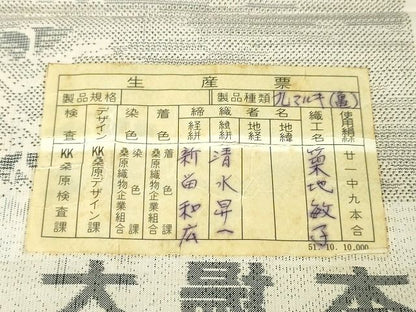 生産票
製品規格 製品種類 九マルキ(亀)
使用絹糸 廿一中九本合
織工名 築地敏子
地緯
者 地経
織 緯絣 清水昇一
締 経絣 新留和広
着色 着色課 桑原織物企業組合
染色 染色課 桑原織物企業組合
デザイン KK桑原デザイン課
検査 KK桑原検査課
51. 10. 10,000
大島